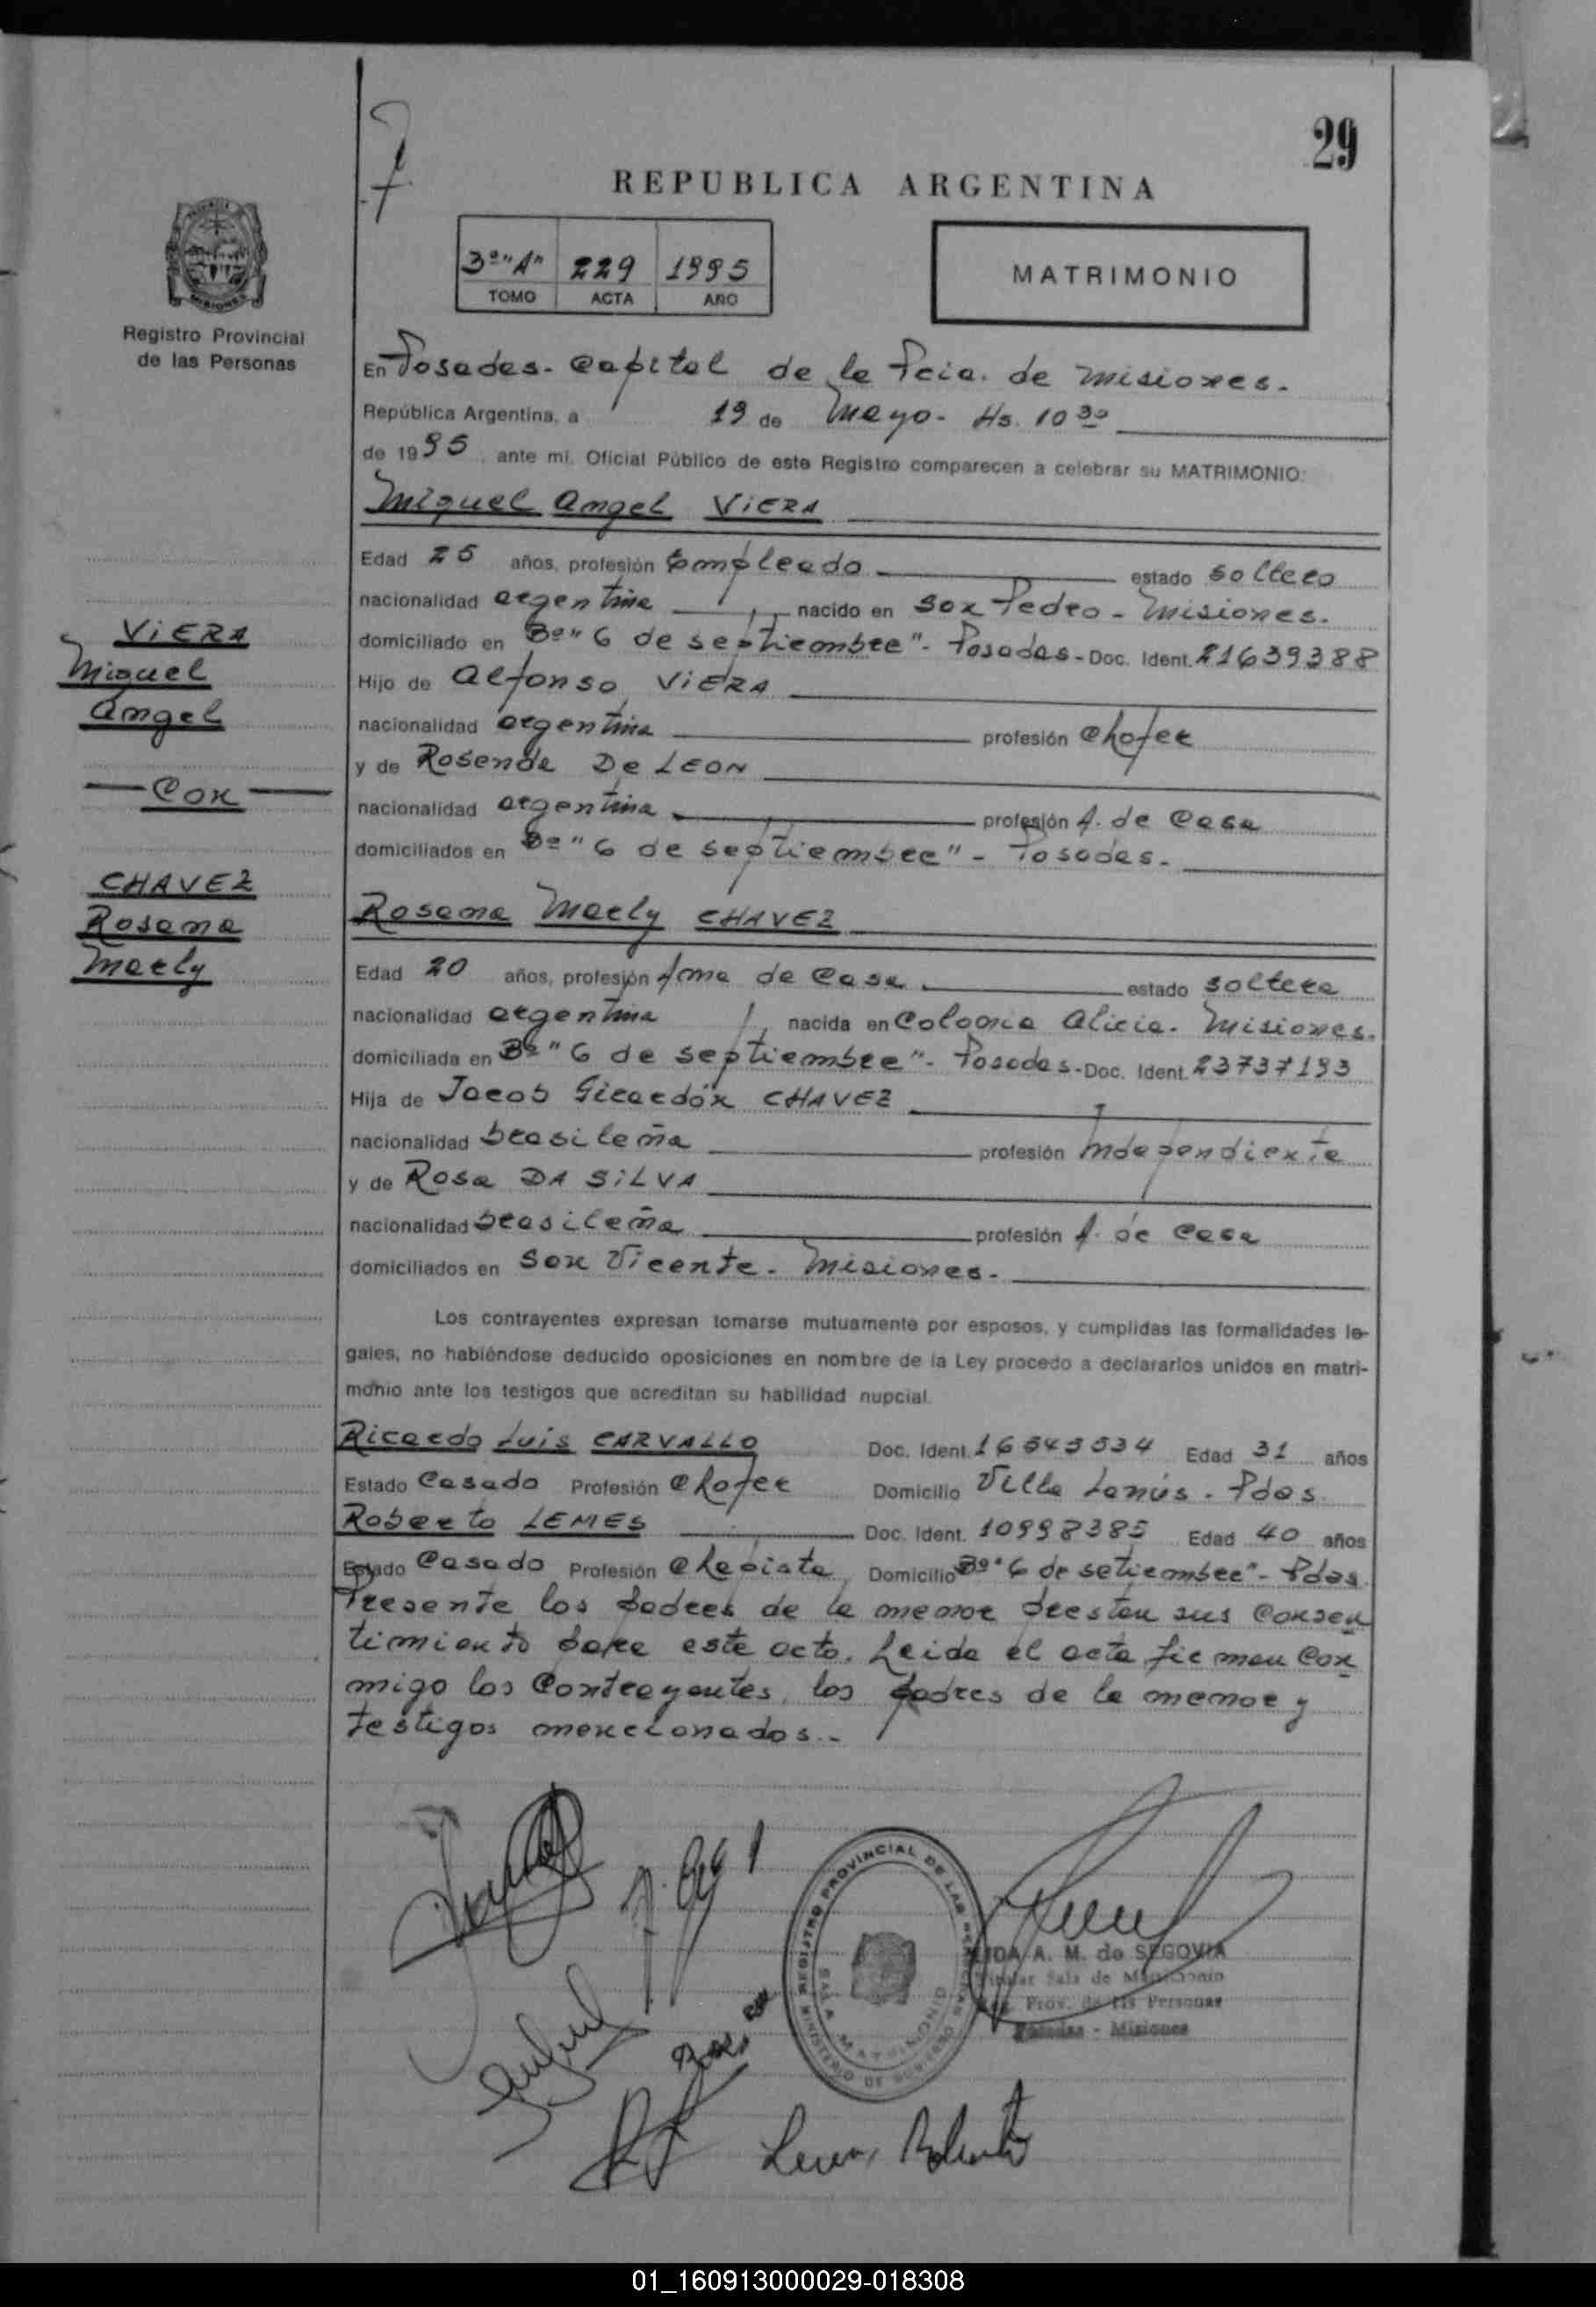 29
REPUBLICA ARGENTINA
3º "A" 229 1995
TOMO ACTA AÑO
MATRIMONIO
Registro Provincial
de las Personas
En Posadas - Capital de la Pcia. de Misiones.
República Argentina, a 19 de Mayo - Hs. 10 30
de 1995, ante mi, Oficial Público de este Registro comparecen a celebrar su MATRIMONIO:
Miguel Angel VIERA
Edad 25 años, profesión Empleado estado soltero
nacionalidad argentina nacido en San Pedro - Misiones.
domiciliado en Bº "6 de septiembre" - Posadas - Doc. Ident. 21639388
Hijo de Alfonso VIERA
nacionalidad argentina profesión Chofer
y de Rosenda De LEON
nacionalidad argentina profesión A. de Casa
domiciliados en Bº "6 de septiembre" - Posadas.
VIERA
Miguel
Angel
Con
CHAVEZ
Rosana
Maely
Rosana Maely CHAVEZ
Edad 20 años, profesión Ama de Casa estado soltera
nacionalidad argentina nacida en Colonia Alicia - Misiones.
domiciliada en Bº "6 de septiembre" - Posadas - Doc. Ident. 23737193
Hija de Jacob Girardón CHAVEZ
nacionalidad brasileña profesión Independiente
y de Rosa DA SILVA
nacionalidad brasileña profesión A. de Casa
domiciliados en San Vicente - Misiones.
Los contrayentes expresan tomarse mutuamente por esposos, y cumplidas las formalidades le-
gales, no habiéndose deducido oposiciones en nombre de la Ley procedo a declararlos unidos en matri-
monio ante los testigos que acreditan su habilidad nupcial.
Ricardo Luis CARVALLO Doc. Ident. 16545534 Edad 31 años
Estado Casado Profesión Chofer Domicilio Villa Lanús - Pdas.
Roberto LEMES Doc. Ident. 10998385 Edad 40 años
Estado Casado Profesión Chapista Domicilio Bº "6 de setiembre" - Pdas.
Presente los padres de la menor prestan sus consen
timiento para este acto. Leida el acta firman con
migo los Contrayentes, los padres de la menor y
testigos mencionados.-
REGISTRO PROVINCIAL DE LAS PERSONAS
SALA MATRIMONIO
MINISTERIO DE GOBIERNO
A. M. de SEGOVIA
Titular Sala de Matrimonio
Reg. Prov. de las Personas
Posadas - Misiones
Lemes Roberto
01_160913000029-018308